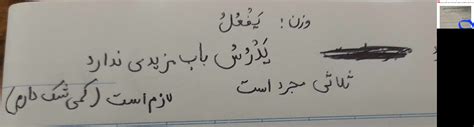 وزن : یَفْعُلُ
یَدْرُسُ باب مزیدی ندارد
ثلاثی مجرد است
لازم است (کمی شک دارم)